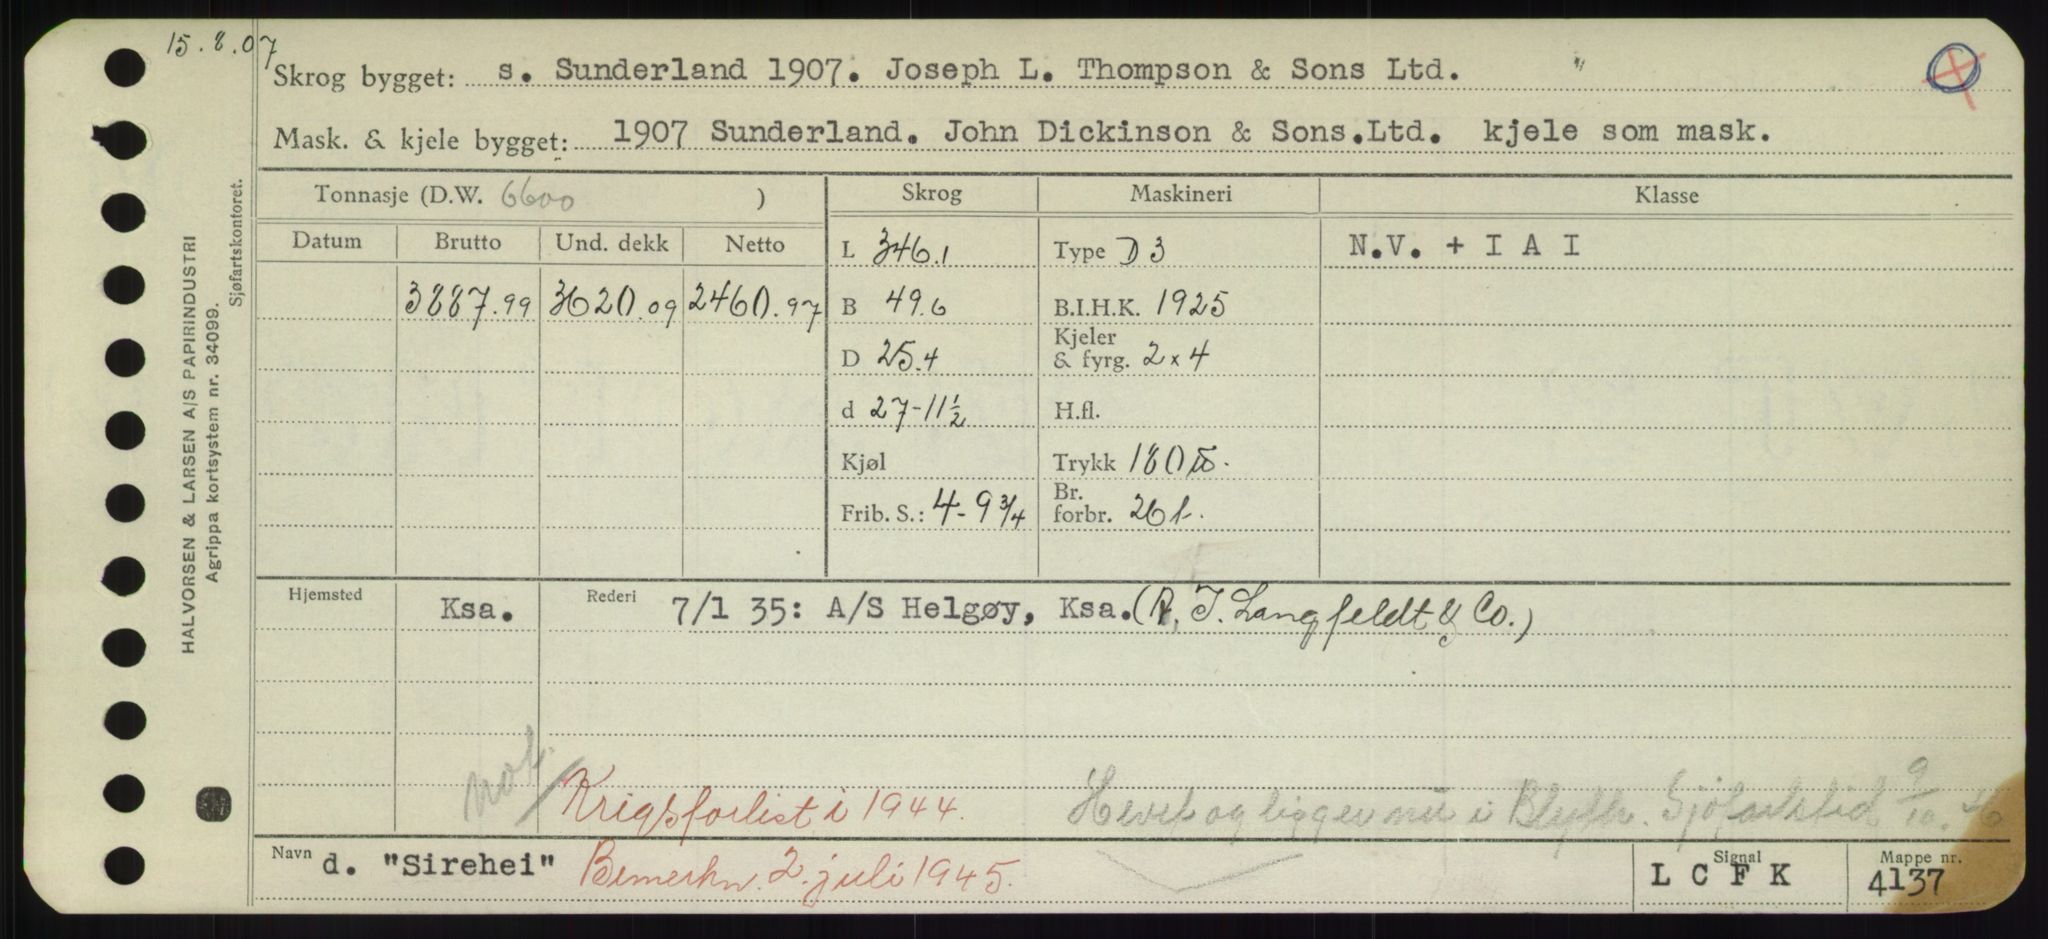 15.8.07
Skrog bygget: s. Sunderland 1907. Joseph L. Thompson & Sons Ltd.
Mask. & kjele bygget: 1907 Sunderland. John Dickinson & Sons.Ltd. kjele som mask.
Tonnasje (D.W. 6600 ) Skrog Maskineri Klasse
Datum Brutto Und. dekk Netto L 346.1 Type D 3 N.V. + I A I
3887.99 3620.09 2460.97 B 49.6 B.I.H.K. 1925
D 25.4 Kjeler & fyrg. 2 x 4
d 27-11½ H.fl.
Kjøl Trykk 180 lb.
Frib. S.: 4-9¾ Br. forbr. 26 t.
Hjemsted Ksa. Rederi 7/1 35: A/S Helgøy, Ksa. (A. I. Langfeldt & Co.)
not. Krigsforlist i 1944. Hevet og ligger nu i Blyth. Sjöfartstid 9/10.46
Navn d. "Sirehei" Bemerkn. 2. juli 1945. Signal L C F K Mappe nr. 4137
HALVORSEN & LARSEN A/S PAPIRINDUSTRI
Agrippa kortsystem nr. 34099.
Sjøfartskontoret.